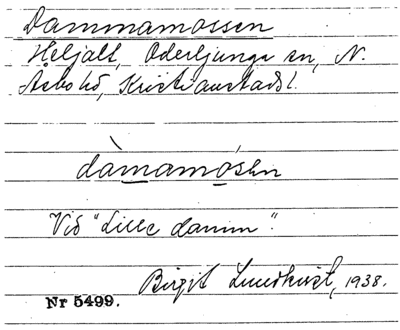 Dammamossen
Heljalt, Oderljunga sn, N.
Åsbo hd, Kristianstads l.
dàmamósən
Vid "Lille damm".
Birgit Lundkvist, 1938.
Nr 5499.